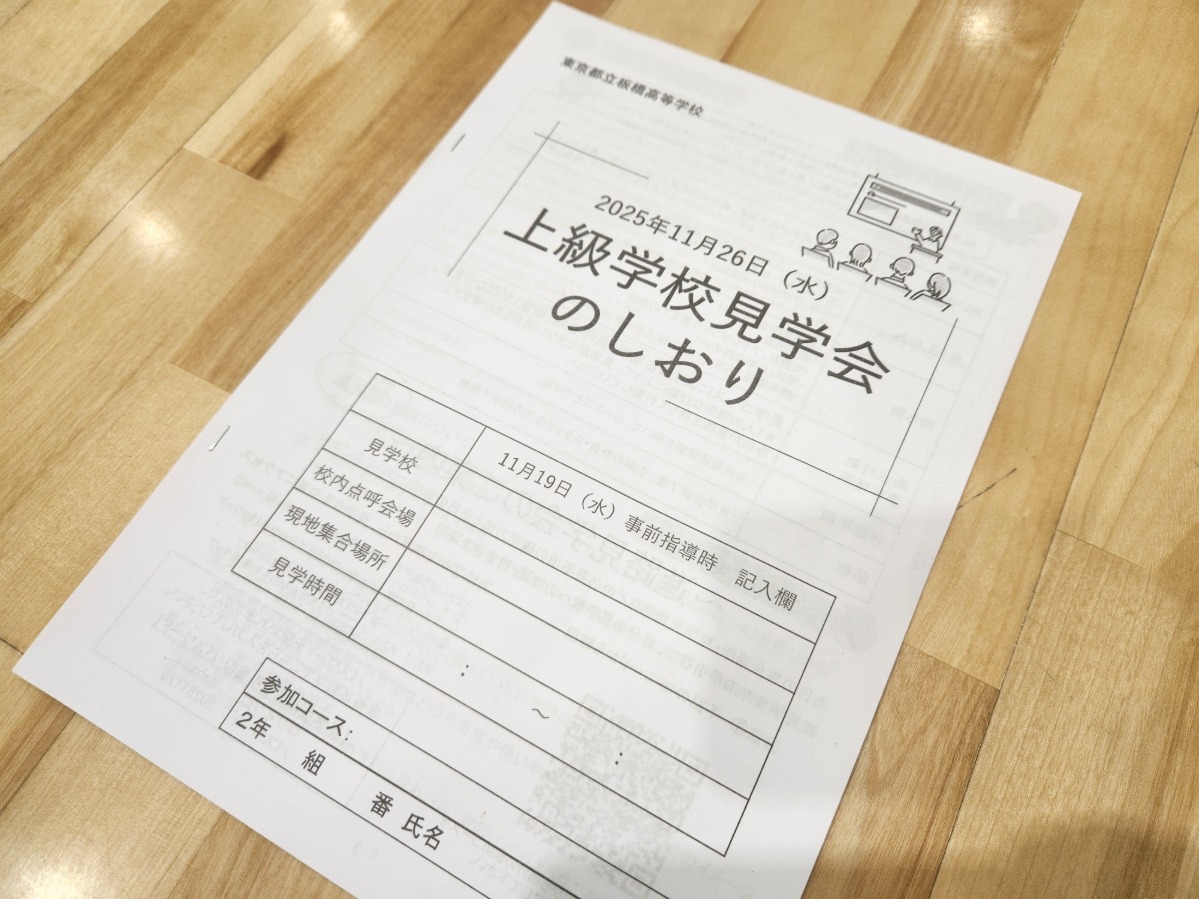 東京都立板橋高等学校
2025年11月26日（水）
上級学校見学会
のしおり
11月19日（水）事前指導時　記入欄
見学校
校内点呼会場
現地集合場所
見学時間　：　～　：
参加コース：
2年　組　番 氏名